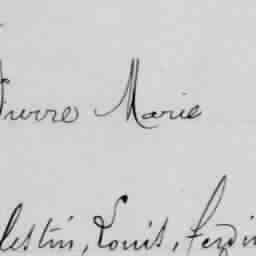 Pierre Marie
lestin, Louis, Ferdin